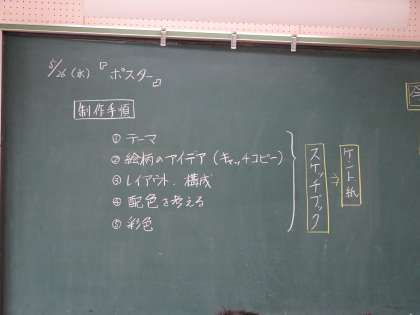 5/26(水)『ポスター』
制作手順
① テーマ
② 絵柄のアイデア(キャッチコピー)
③ レイアウト、構成
④ 配色を考える
⑤ 彩色
スケッチブック
⇒
ケント紙